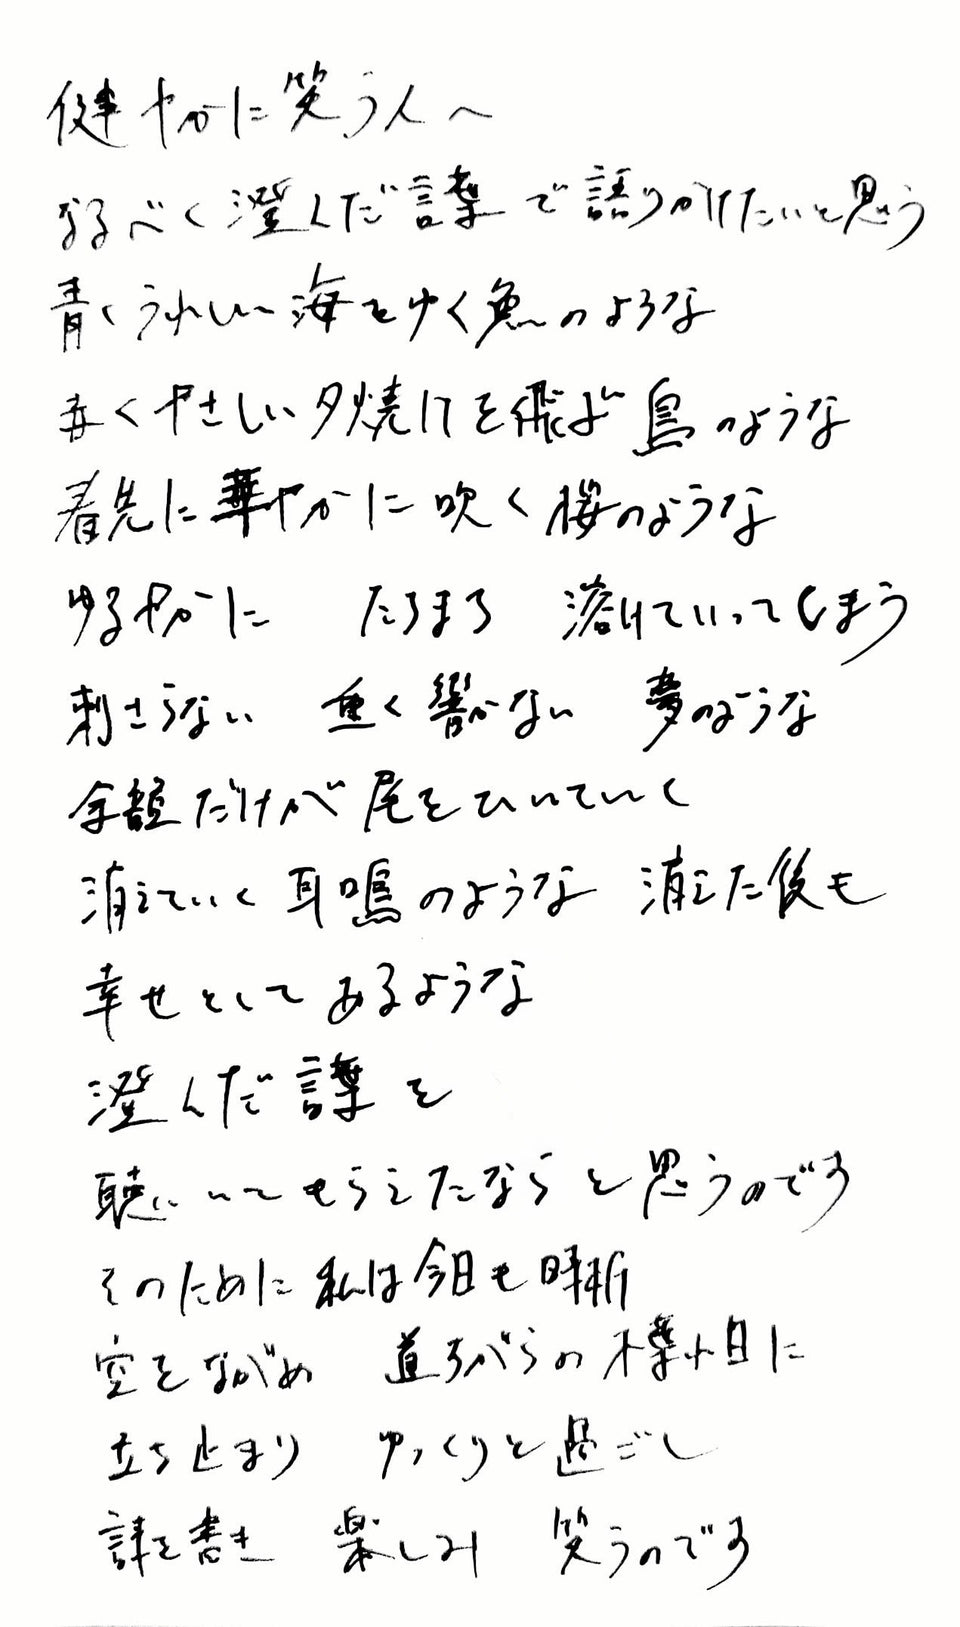 健やかに笑う人へ
なるべく澄んだ言葉で語りかけたいと思う
青くうれしい海をゆく魚のような
赤くやさしい夕焼けを飛ぶ鳥のような
春先に華やかに吹く桜のような
ゆるやかに　たちまち　溶けていってしまう
刺さらない　重く響かない　夢のような
余韻だけが尾をひいていく
消えていく耳鳴のような　消えた後も
幸せとしてあるような
澄んだ言葉を
聴いてもらえたなら と思うのです
そのために私は今日も時折
空をながめ　道ちがらの木葉や日に
立ち止まり　ゆっくりと過ごし
詩を書き　楽しみ　笑うのです